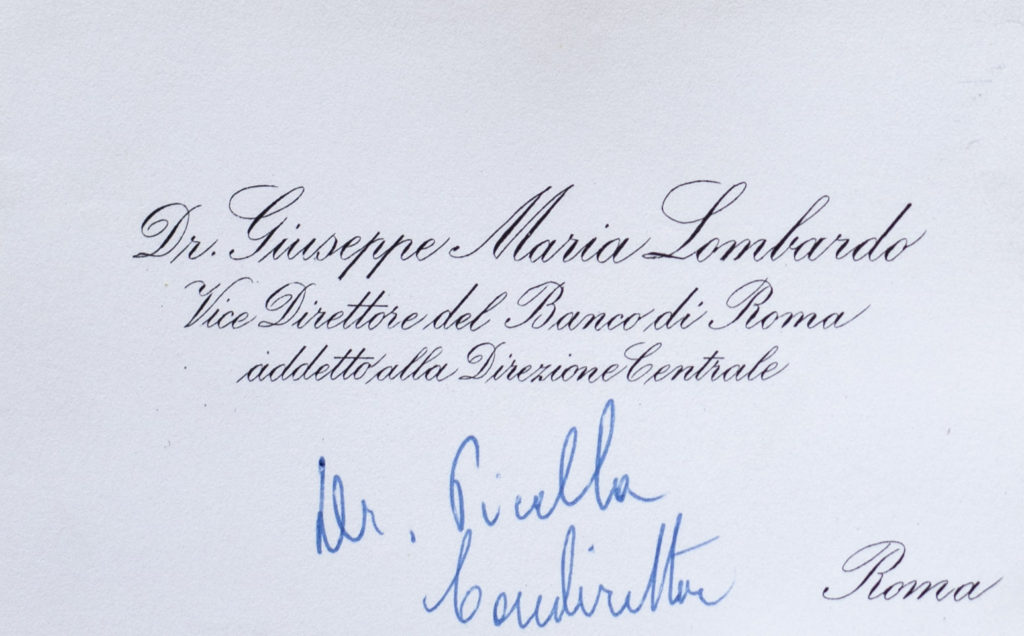 Dr. Giuseppe Maria Lombardo
Vice Direttore del Banco di Roma
addetto alla Direzione Centrale
Dr.
Condirettore
Roma